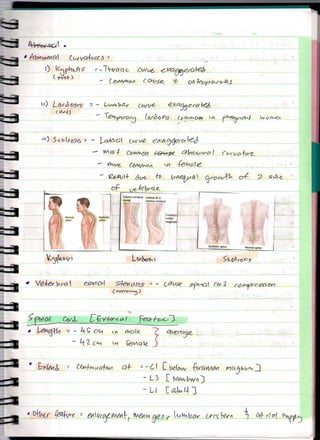 Abnormal.
• Abnormal Curvatures :
i) Kyphosis :- Thoracic curve exaggerated
- Common cause = osteoporosis
ii) Lordosis :- Lumbar curve exaggerated
- Temporary lordosis common in pregnant women
iii) Scoliosis :- Lateral curve exaggerated
- most common abnormal curvature
- more common in female
- Result due to unequal growth of 2 side
of vertebrae
Kyphosis Lordosis Scoliosis
• Vertebral canal stenosis :- cause spinal cord compression
(narrowing)
Spinal Cord [External Feature]
• Length :- 45 cm in male } average
- 42 cm in female
• Extends : Continuation at :- C1 [below foramen magnum]
- L3 [Newborn]
- L1 [adult]
• Other feature = enlargement, meninges, lumbar cistern